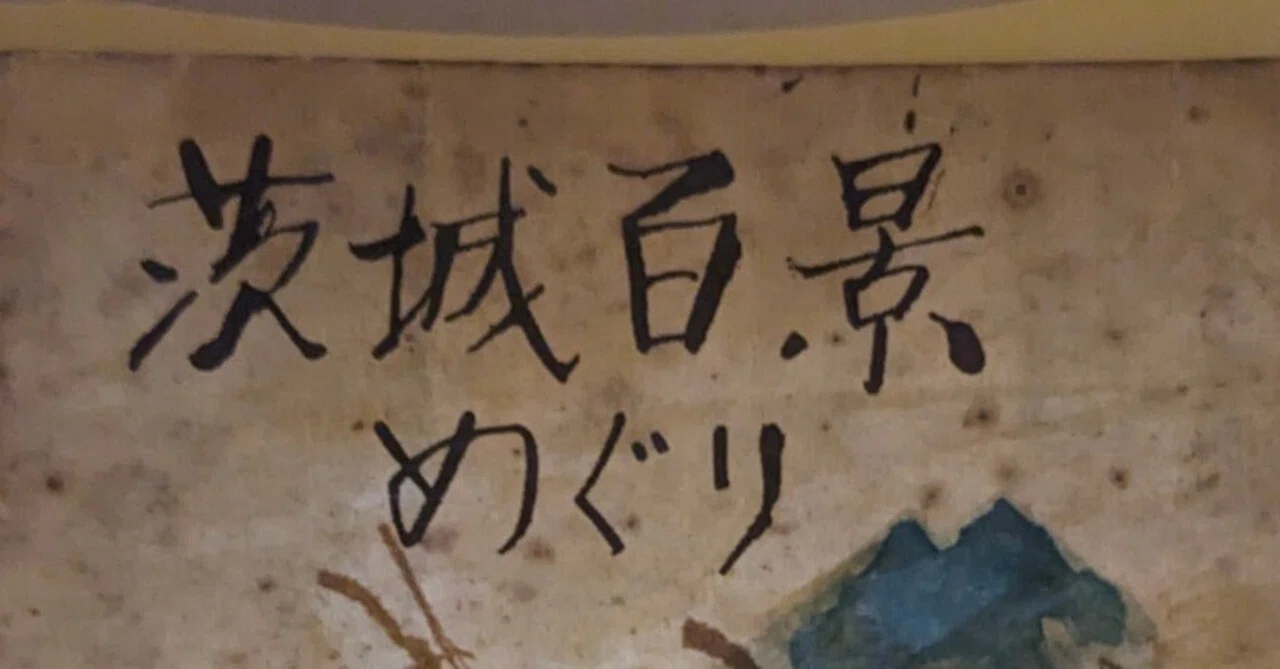 茨城百景
めぐり